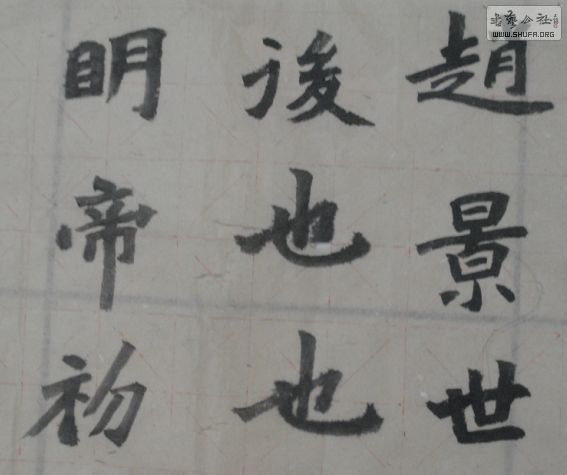 趙景世
後也也
明帝初
书艺公社
WWW.SHUFA.ORG